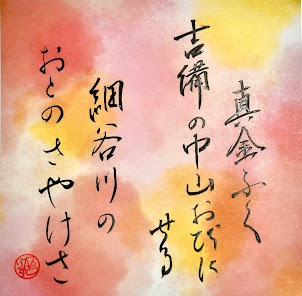 真金ふく
吉備の中山おびに
せる
細谷川の
おとのさやけさ